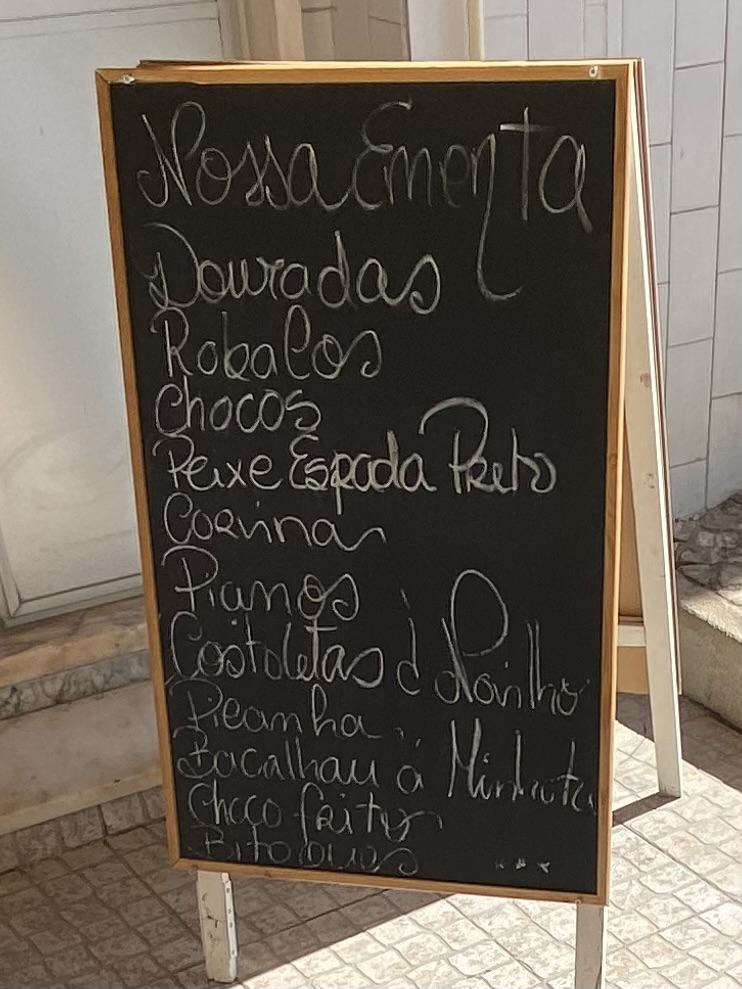 Nossa Ementa
Douradas
Robalos
Chocos
Peixe Espada Preto
Corvina
Pianos
Costoletas
Picanha
Bacalhau á Minhota
Choco frito
Bitoques